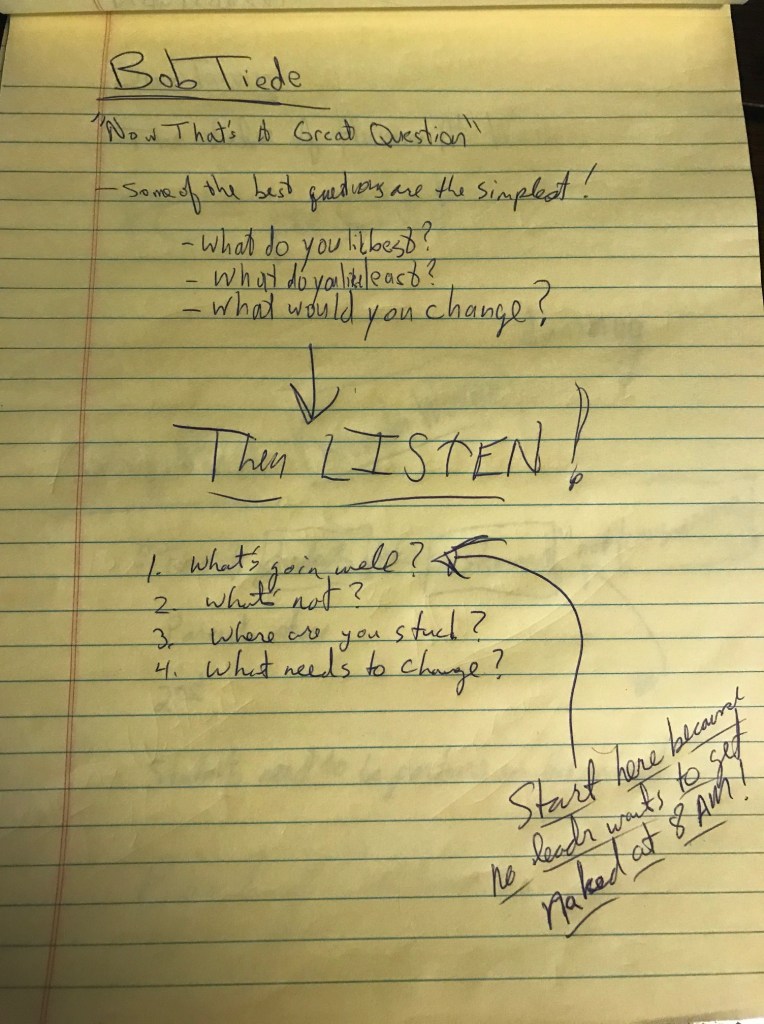 Bob Tiede
"Now That's A Great Question"
- Some of the best questions are the simplest!
- What do you lik best?
- What do you like least?
- What would you change?
Then LISTEN!
1. What's goin well?
2. What's not?
3. Where are you stuck?
4. What needs to change?
Start here because
no leadr wants to get
naked at 8 AM!